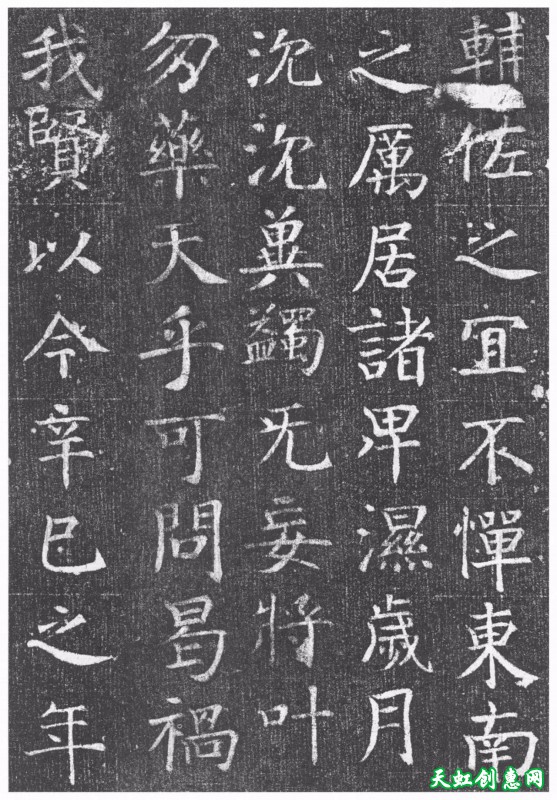 輔佐之宜不憚東南
之厲居諸卑濕歲月
沉沉冀蠲旡妄將叶
勿藥天乎可問曷禍
我賢以今辛巳之年
天虹创惠网